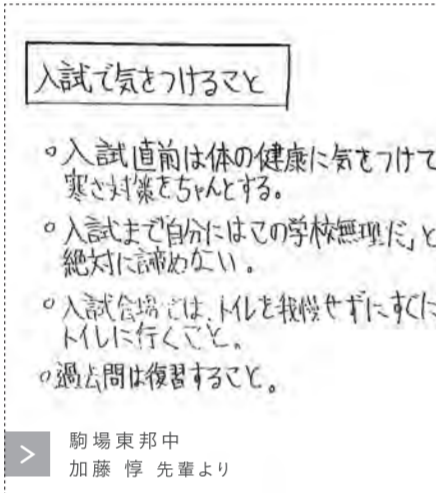 入試で気をつけること
○入試直前は体の健康に気をつけて
寒さ対策をちゃんとする。
○入試まで自分にはこの学校無理だ」と
絶対に諦めない。
○入試会場では、トイレを我慢せずにすぐに
トイレに行くこと。
○過去問は復習すること。
> 駒場東邦中
加藤 惇 先輩より